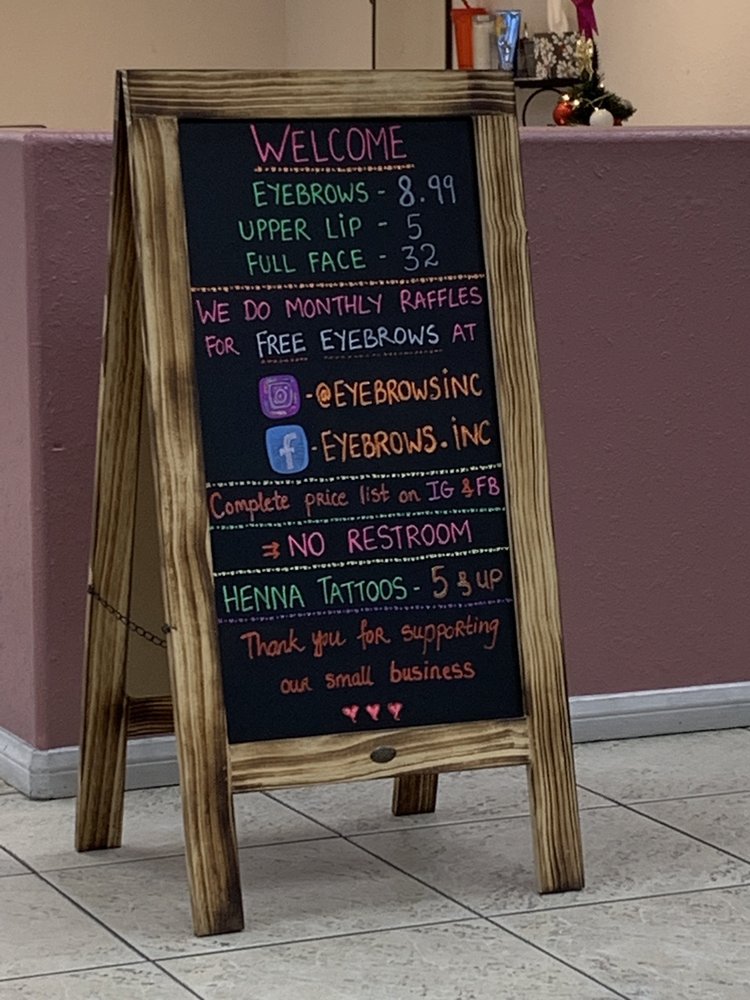 WELCOME
EYEBROWS - 8.99
UPPER LiP - 5
FULL FACE - 32
WE DO MONTHLY RAFFLES
FOR FREE EYEBROWS AT
- @EYEBROWSiNC
f - EYEBROWS.iNC
Complete price list on IG & FB
⇉ NO RESTROOM
HENNA TATTOOS - 5 & UP
Thank you for supporting
our small business